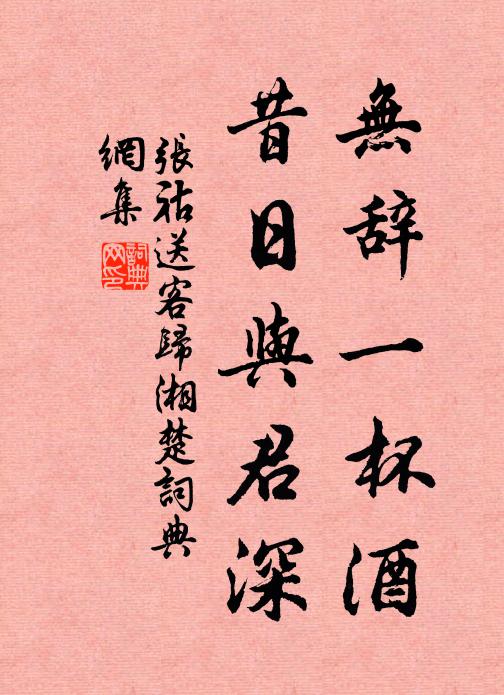 無辞一杯酒
昔日與君深
張祜送客歸湘楚詞典
網集
詞典
网印